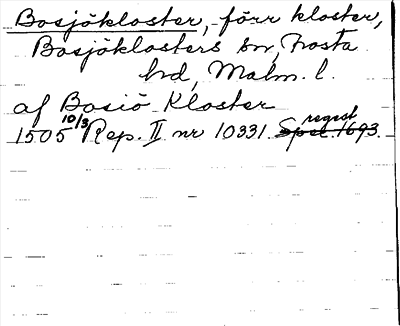 Bosjökloster, förr kloster,
Bosjöklosters sn, Frosta
hd, Malm. l.
af Bosiö Kloster
1505 10/3 Rep. II nr 10331. regest Spec. 1693.